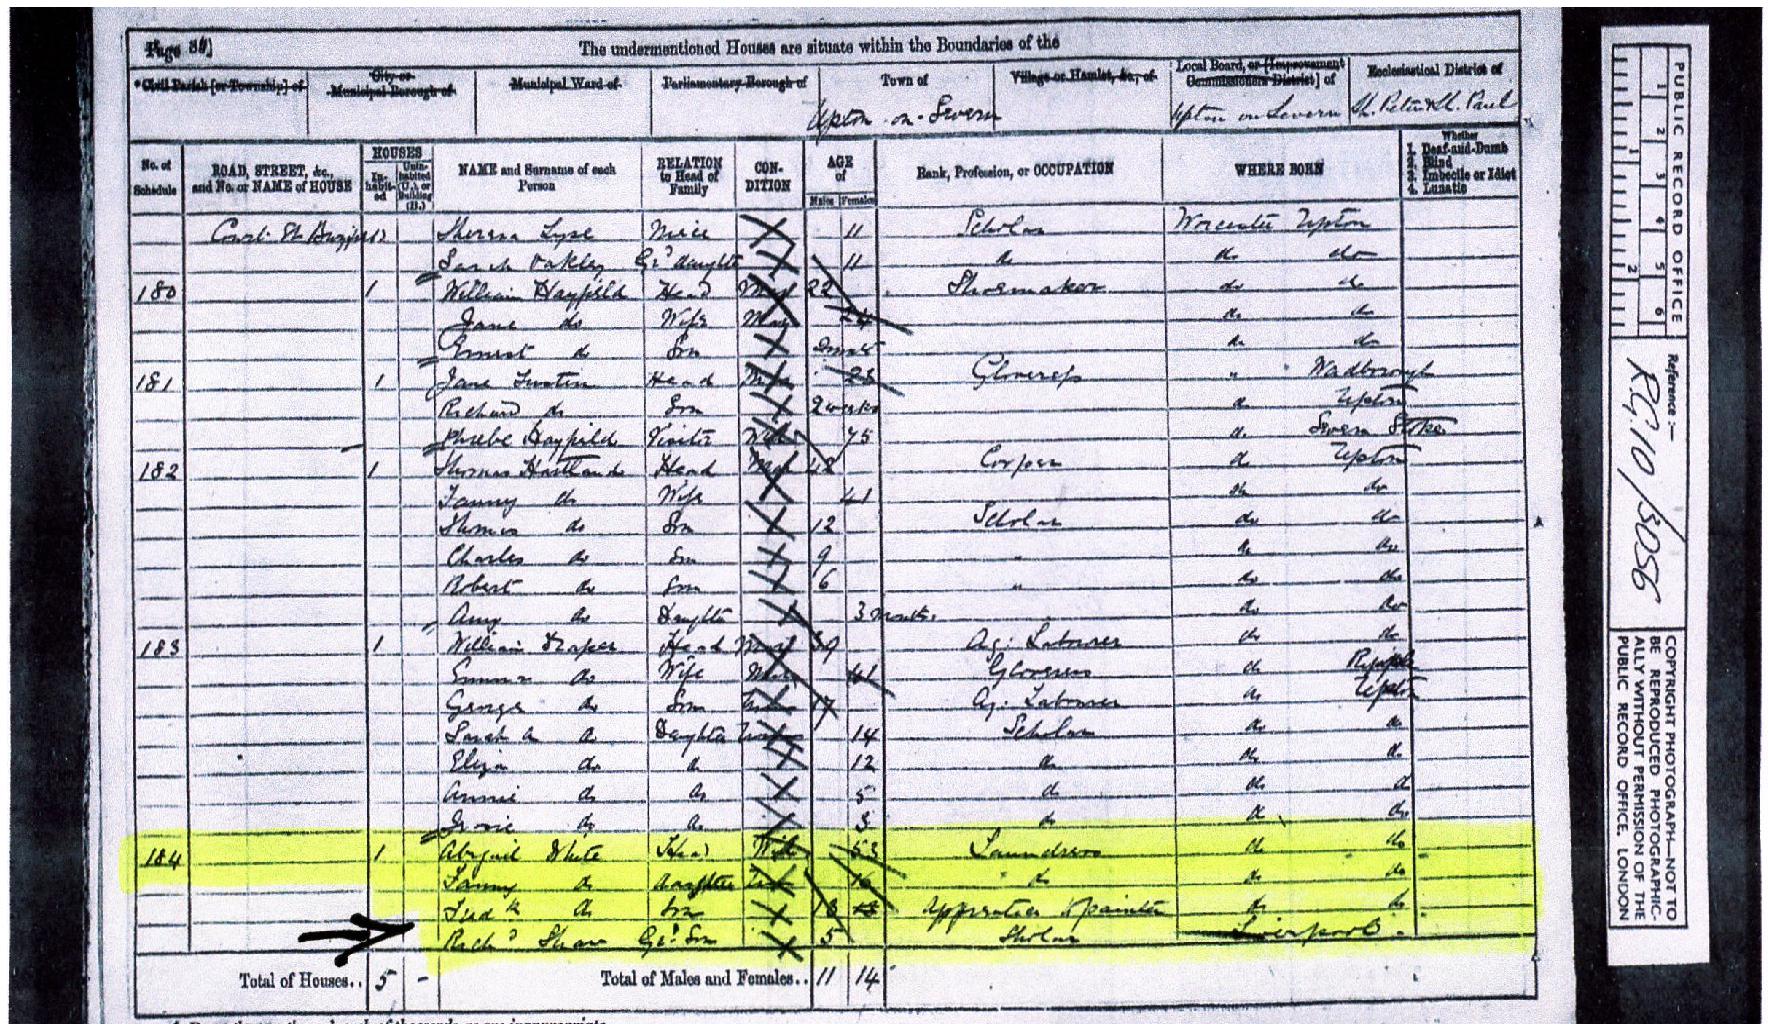 Page 39]
The undermentioned Houses are situate within the Boundaries of the
Civil Parish [or Township] of
City or Municipal Borough of
Municipal Ward of
Parliamentary Borough of
Town of
Village or Hamlet, &c., of
Local Board, or [Improvement Commissioners District] of
Ecclesiastical District of
Upton-on-Severn
Upton on Severn
St. Peter & St. Paul
No. of Schedule
ROAD, STREET, &c., and No. or NAME of HOUSE
HOUSES
Inhabited
Uninhabited (U.) or Building (B.)
NAME and Surname of each Person
RELATION to Head of Family
CONDITION
AGE of
Males Females
Rank, Profession, or OCCUPATION
WHERE BORN
Whether
1. Deaf-and-Dumb
2. Blind
3. Imbecile or Idiot
4. Lunatic
Court St Theresa Niece 11 Scholar Worcester Upton
Sarah Oakley Gd daughter 11 do do do
180 1 William Hayfild Head Mar 22 Shoemaker do do
Jane do Wife Mar 24 do do
Ernest do Son do do
181 1 Jane Head 25 Gloveress " Wadborough
Richard do Son 2 weeks do Upton
Phoebe Hayfild Visitor Wid 75 do Severn Stoke
182 1 Thomas Hartlands Head Mar 42 do Upton
Fanny do Wife 41 do do
Thomas do Son 12 Scholar do do
Charles do Son 9 " do do
Robert do Son 6 " do do
Amy do Daughter 3 months do do
183 1 William Draper Head Mar 39 Ag: Labourer do do
Emma do Wife Mar 41 Gloveress do Ripple
George do Son 17 Ag: Labourer do Upton
Sarah A do Daughter 14 Scholar do do
Eliza do do 12 do do do
Annie do do 5 do do do
do do 3 do do do
184 1 Abigail White Head Wid 53 Laundress do do
Fanny do daughter 16 " do do do
Fredk do Son 13 Apprentice painter do do
Richd Shaw Gd Son 5 Scholar Liverpool
Total of Houses.. 5 - Total of Males and Females.. 11 14
PUBLIC RECORD OFFICE
1 2 3 4 5 6
1 2
Reference :-
R.G. 10 / 3056
COPYRIGHT PHOTOGRAPH—NOT TO
BE REPRODUCED PHOTOGRAPHIC-
ALLY WITHOUT PERMISSION OF THE
PUBLIC RECORD OFFICE, LONDON